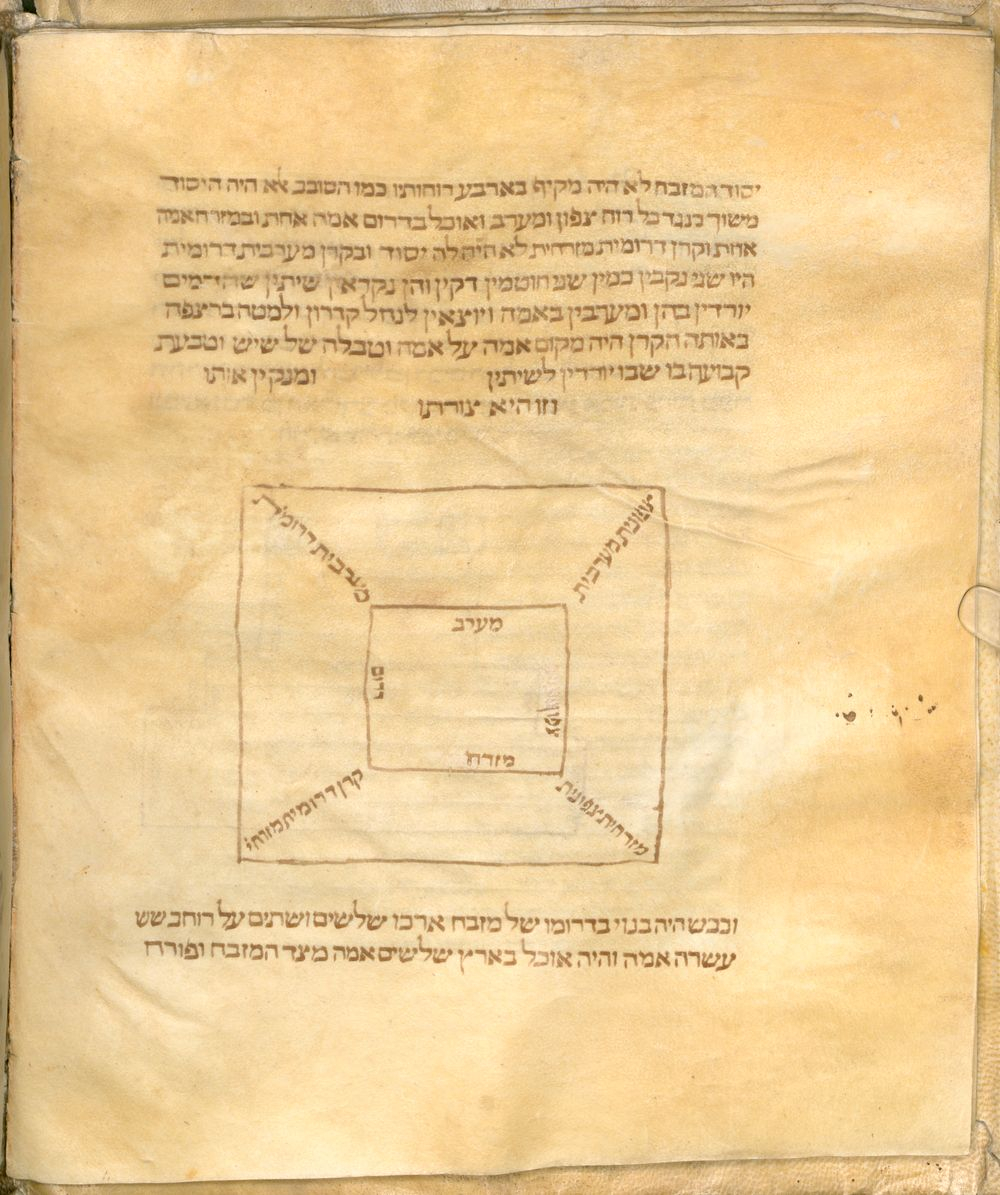 יסוד המזבח לא היה מקיף בארבע רוחותיו כמו הסובב אלא היה היסוד
משוך כנגד כל רוח צפון ומערב ואוכל בדרום אמה אחת ובמזרח אמה
אחת וקרן דרומית מזרחית לא היה לה יסוד ובקרן מערבית דרומית
היו שני נקבין כמין שני חוטמין דקין והן נקראין שיתין שהדמים
יורדין בהן ומערבין באמה ויוצאין לנחל קדרון ולמטה ברצפה
באותה הקרן היה מקום אמה על אמה וטבלה של שיש וטבעת
קבועה בו שבו יורדין לשיתין ומנקין אותו
וזו היא צורתו
צפונית מערבית
מערבית דרומית
מערב
דרום
צפון
מזרח
קרן דרומית מזרחי
מזרחית צפונית
וכבש היה בנוי בדרומו של מזבח ארכו שלשים ושתים על רוחב שש
עשרה אמה והיה אוכל בארץ שלשים אמה מצד המזבח ופורח